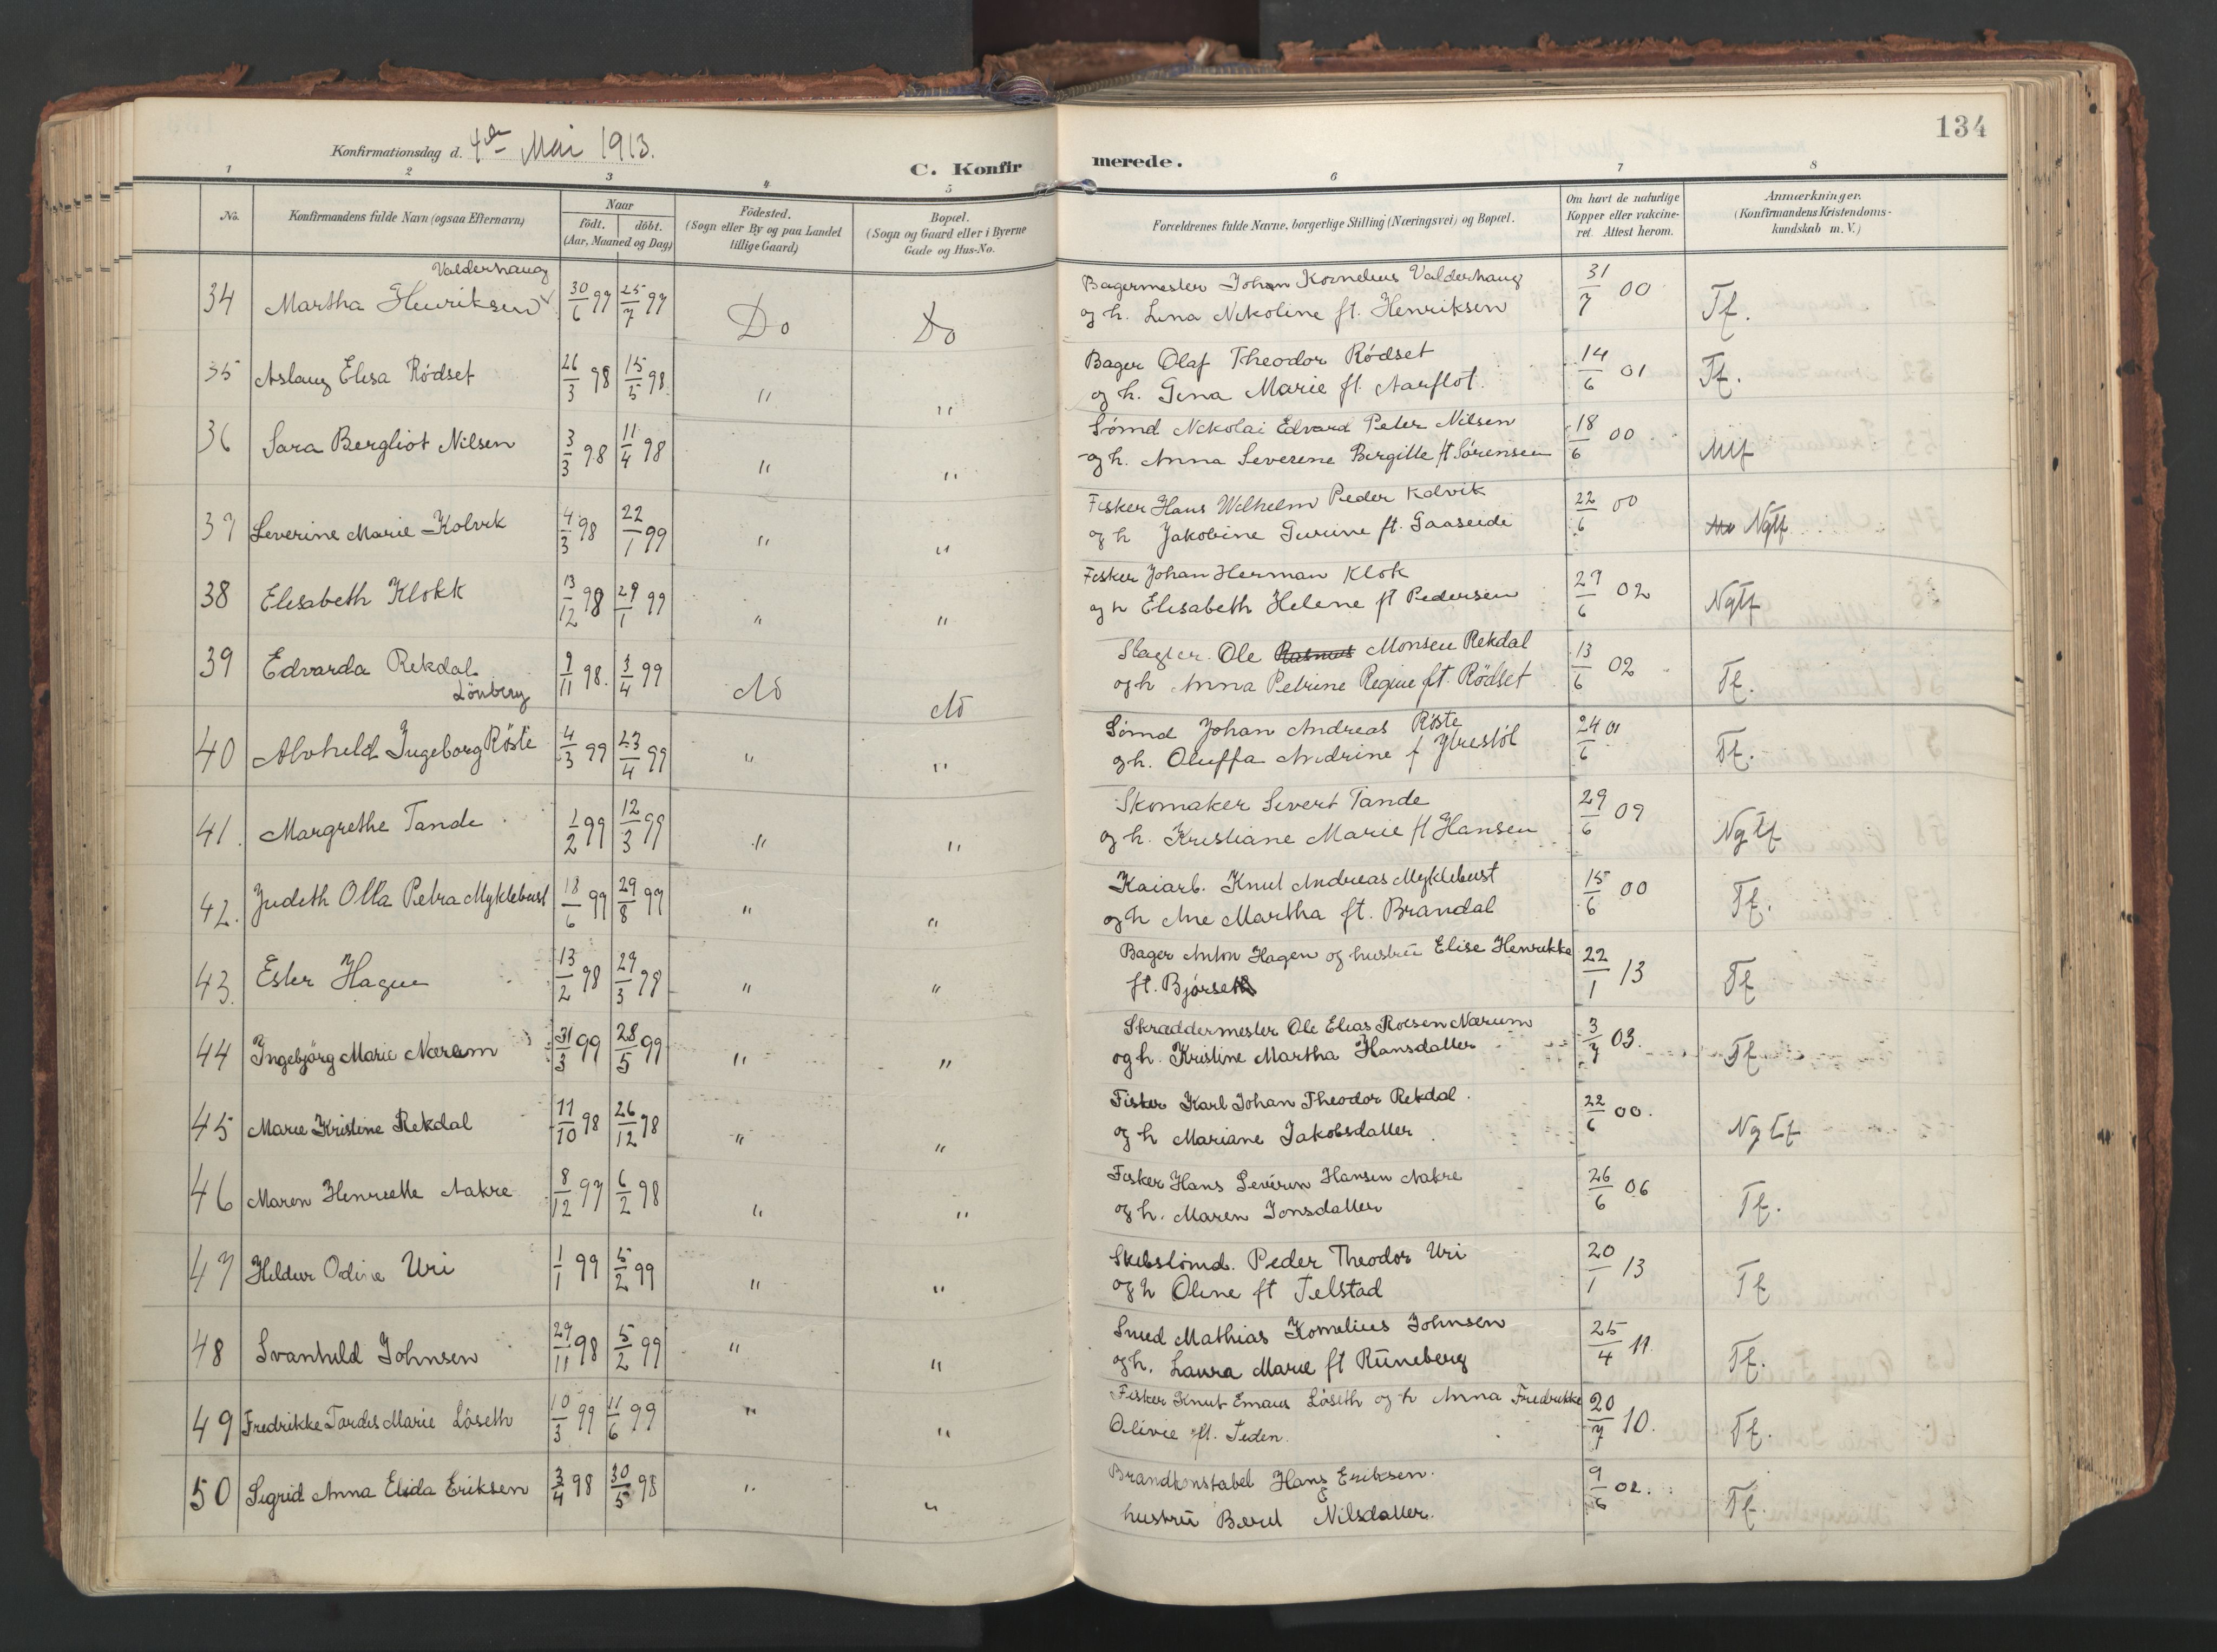 134
Konfirmationsdag d. 4de Mai 1913.
C. Konfirmerede.
1 2 3 4 5 6 7 8
No. Konfirmandens fulde Navn (ogsaa Efternavn) Naar født. døbt. (Aar, Maaned og Dag) Födested. (Sogn eller By og paa Landet tillige Gaard) Bopæl. (Sogn og Gaard eller i Byerne Gade og Hus-No. Forældrenes fulde Navne, borgerlige Stilling (Næringsvei) og Bopæl. Om havt de naturlige Kopper eller vakcineret. Attest herom. Anmærkninger. (Konfirmandens Kristendomskundskab m. V.)
Valderhaug
34 Martha Henriksen 30/6 97 25/7 97 Do Do Bagermester Johan Kornelius Valderhaug 31/7 00 Tf.
og h. Lina Nikoline ft. Henriksen
35 Aslaug Elisa Rödset 26/3 98 15/5 98 " " Bager Olaf Theodor Rödset 14/6 01 Tf.
og h. Gina Marie ft. Aarflot.
36 Sara Bergliot Nilsen 3/3 98 11/4 98 " " Sömd Nikolai Edvard Peter Nilsen 18/6 00 Mtf
og h. Anna Severine Birgitte ft Sörensen
37 Severine Marie Kolvik 4/3 98 22/1 99 " " Fisker Hans Wilhelm Peder Kolvik 22/6 00 Ngtf
og h Jakobine Gurine ft. Gaaseide
38 Elisabeth Klokk 13/12 98 29/1 99 " " Fisker Johan Herman Klok 29/6 02 Ngtf
og h Elisabeth Helene ft Pedersen
39 Edvarda Rekdal 9/11 98. 3/4 99 Do Do Slagter. Ole Rasmus Monsen Rekdal 13/6 02 Tf.
Lönberg og h Anna Petrine Regine ft. Rödset
40 Alvhild Ingeborg Röste 4/3 99 23/4 99 " " Sömd Johan Andreas Röste 24/6 01 Tf.
og h. Oluffa Andrine f Ytrestöl
41. Margrethe Tande 1/2 99 12/3 99 " " Skomaker Sivert Tande 29/6 09 Ngtf
og h. Kristiane Marie ft Hansen
42. Judith Olla Petra Myklebust 18/6 97 29/8 97 " " Kaiarb. Knut Andreas Myklebust 15/6 00 Tf.
og h Ane Martha ft. Brandal
43. Ester Hagen 13/2 98 29/3 98 " " Bager Anton Hagen og hustru Elise Henrikke 22/1 13 Tf
ft. Björseth
44 Ingebjörg Marie Nærum 31/3 99 28/5 99 " " Skræddermester Ole Elias Roesen Nærum 3/7 03. Tf
og h. Kristine Martha Hansdatter
45 Marie Kristine Rekdal 11/10 98 26/12 98 " " Fisker Karl Johan Theodor Rekdal. 22/6 00. Ngtf
og h Mariane Jakobsdatter
46 Maren Henriette Aakre 8/12 97 6/2 98 " " Fisker Hans Severin Hansen Aakre 26/6 06 Tf.
og h. Maren Jonsdatter
47 Hildur Odine Uri 1/1 99 5/2 99 " " Skibstömd. Peder Theodor Uri 20/1 13 Tf
og h Oline ft Telstad
48 Svanhild Johnsen 29/11 98 5/2 99 " " Smed Mathias Kornelius Johnsen 25/4 11. Tf.
og h. Laura Marie ft Runeberg
49 Fredrikke Tordis Marie Löseth 10/3 99 11/6 99 " " Fisker Knut Emaus Löseth og h Anna Fredrikke 20/7 10. Tf.
Olivie ft. Teden.
50 Sigrid Anna Elida Eriksen 3/4 98 30/5 98 " " Brandkonstabel Hans Eriksen. 9/6 02. Tf.
hustru Berit Nilsdatter.